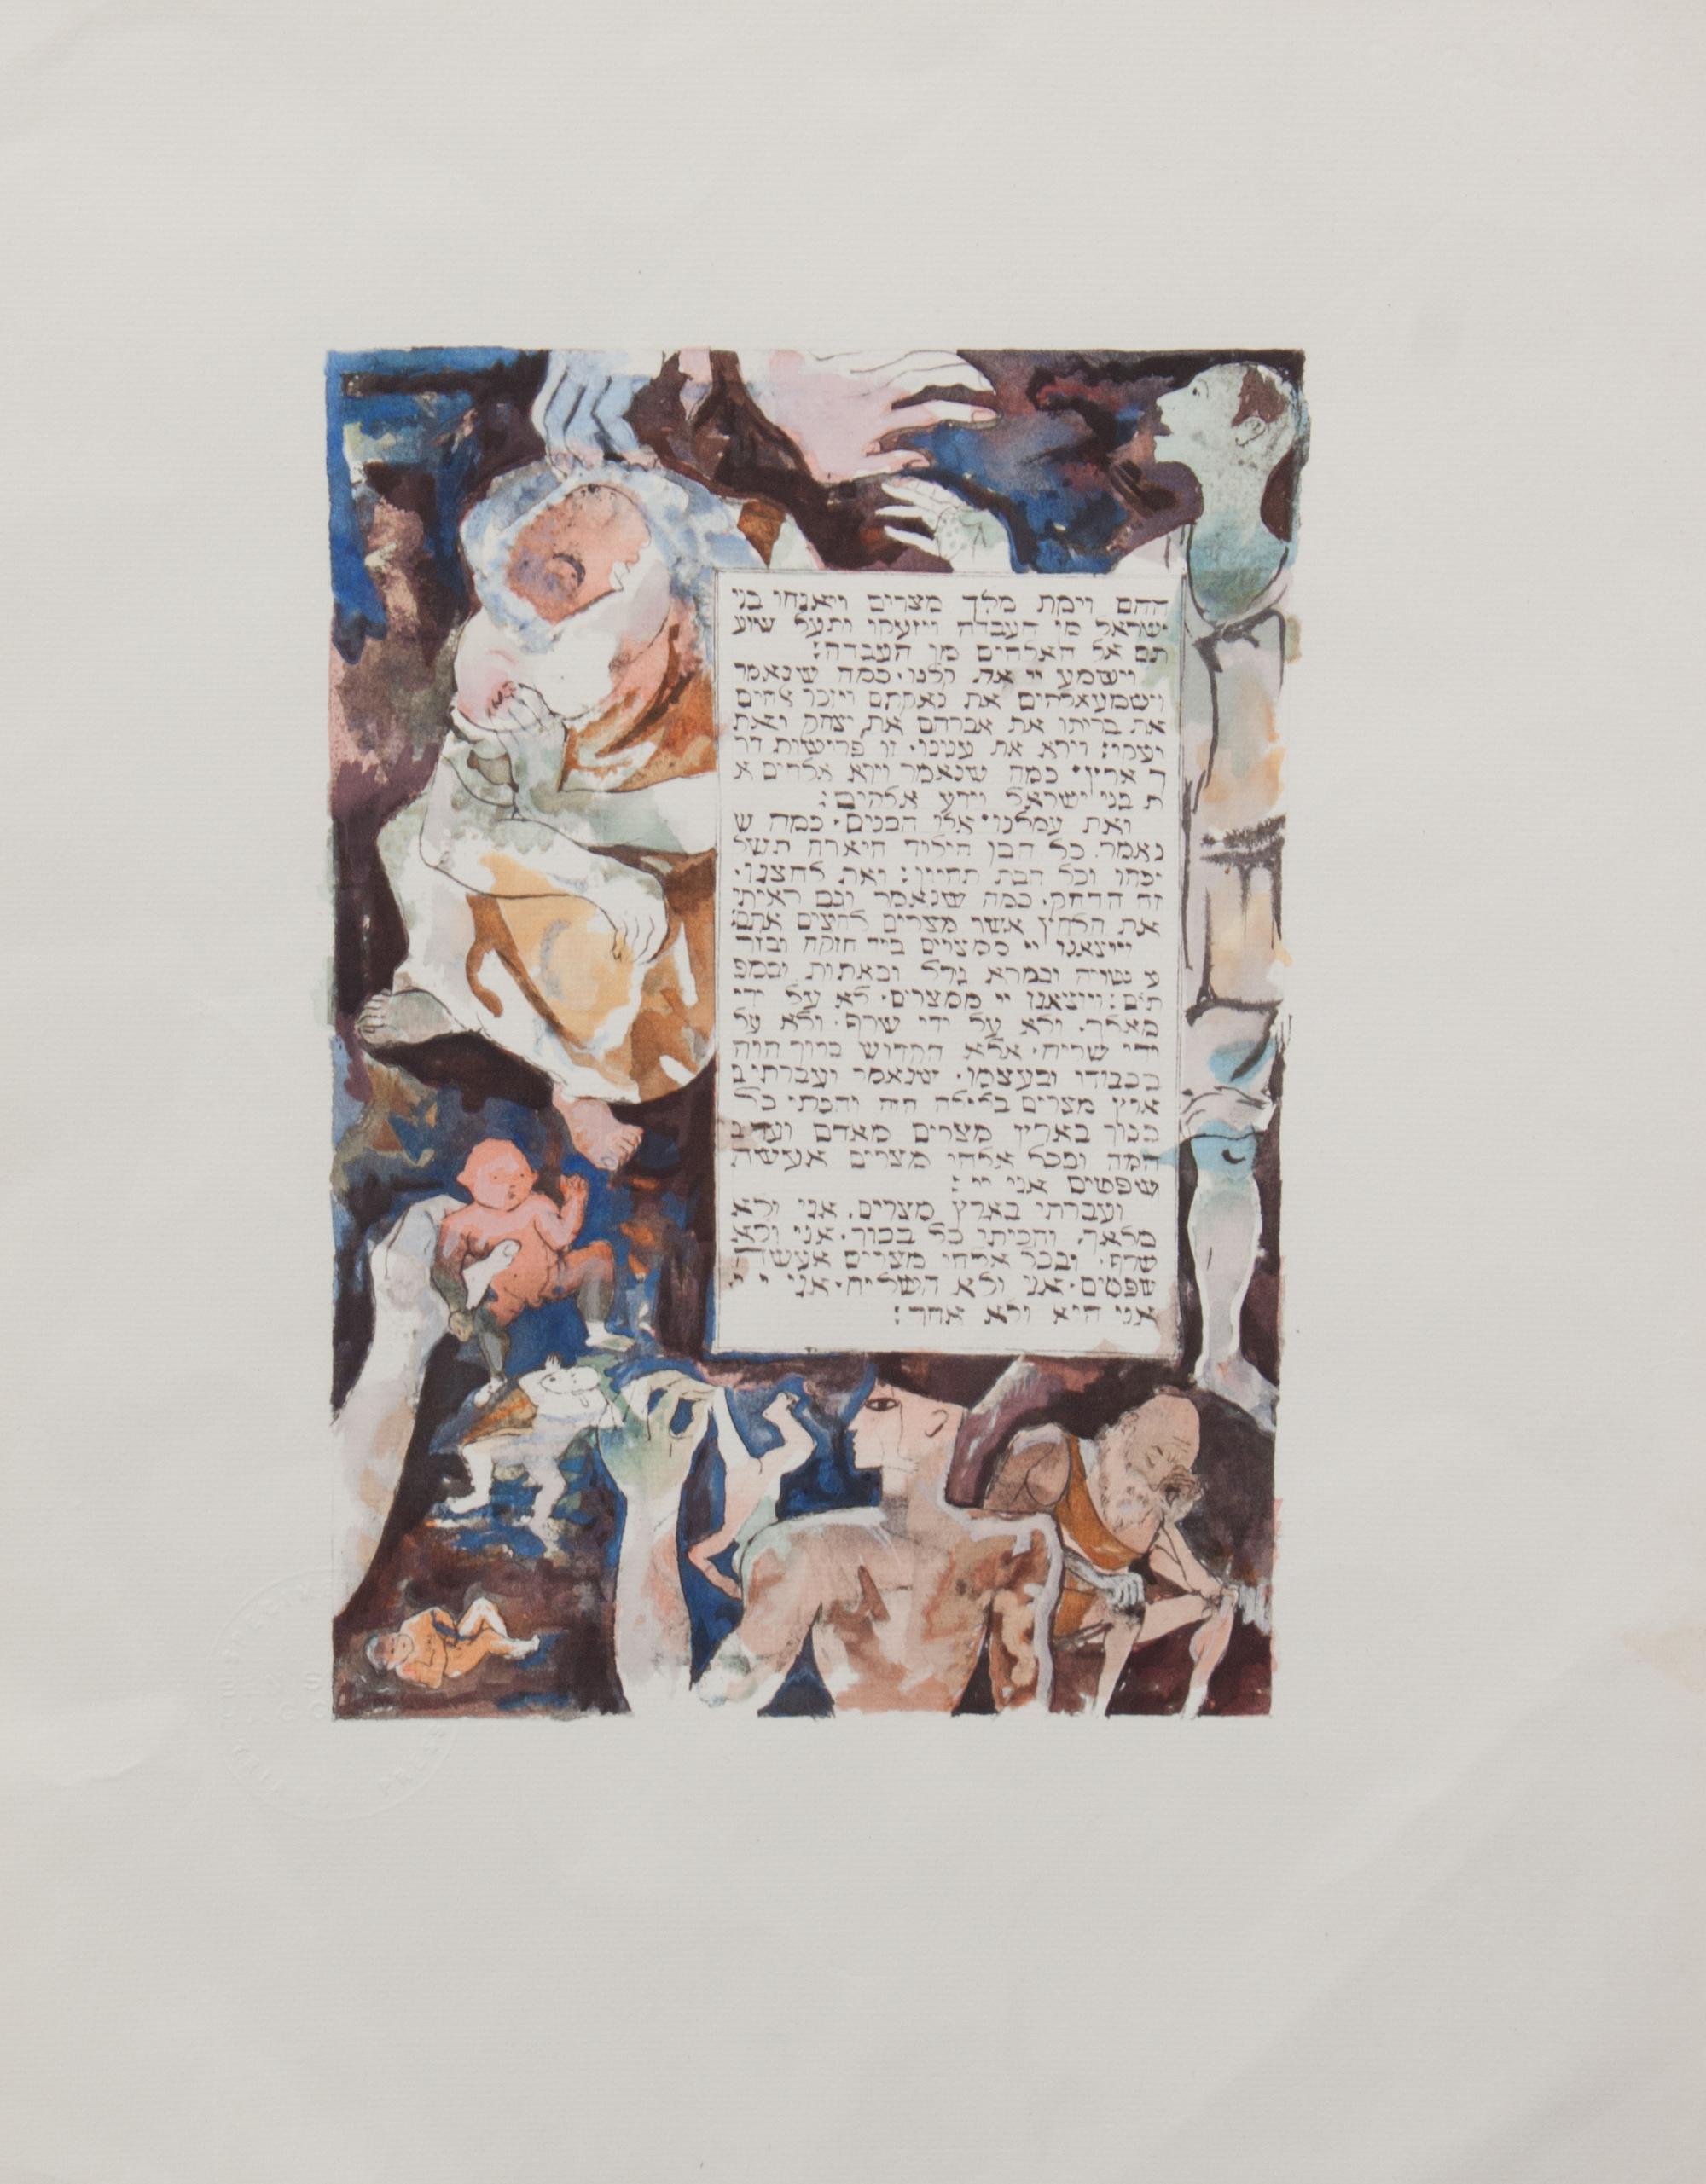 ההם וימת מלך מצרים ויאנחו בני
ישראל מן העבדה ויזעקו ותעל שוע
תם אל האלהים מן העבדה:
וישמע יי את קלנו. כמה שנאמר
וישמע אלהים את נאקתם ויזכר אלהים
את בריתו את אברהם את יצחק ואת
יעקב: וירא את ענינו. זו פרישות דר
ך ארץ. כמה שנאמר וירא אלהים א
ת בני ישראל וידע אלהים:
ואת עמלנו. אלו הבנים. כמה ש
נאמר. כל הבן הילוד היארה תשל
יכהו וכל הבת תחיון: ואת לחצנו.
זה הדחק. כמה שנאמר וגם ראיתי
את הלחץ אשר מצרים לחצים אתם:
ויוצאנו יי ממצרים ביד חזקה ובזר
ע נטויה ובמרא גדל ובאתות ובמפ
תים: ויוצאנו יי ממצרים. לא על ידי
מאלך. ולא על ידי שרף. ולא על
ידי שליח. אלא הקדוש ברוך הוא
בכבודו ובעצמו. שנאמר ועברתי ב
ארץ מצרים בלילה הזה והכתי כל
בכור בארץ מצרים מאדם ועד ב
המה ובכל אלהי מצרים אעשה
שפטים אני יי:
ועברתי בארץ מצרים. אני ולא
מלאך. והכיתי כל בכור. אני ולא
שרף. ובכל אלהי מצרים אעשה
שפטים. אני ולא השליח. אני יי
אני הוא ולא אחר:
PRESS